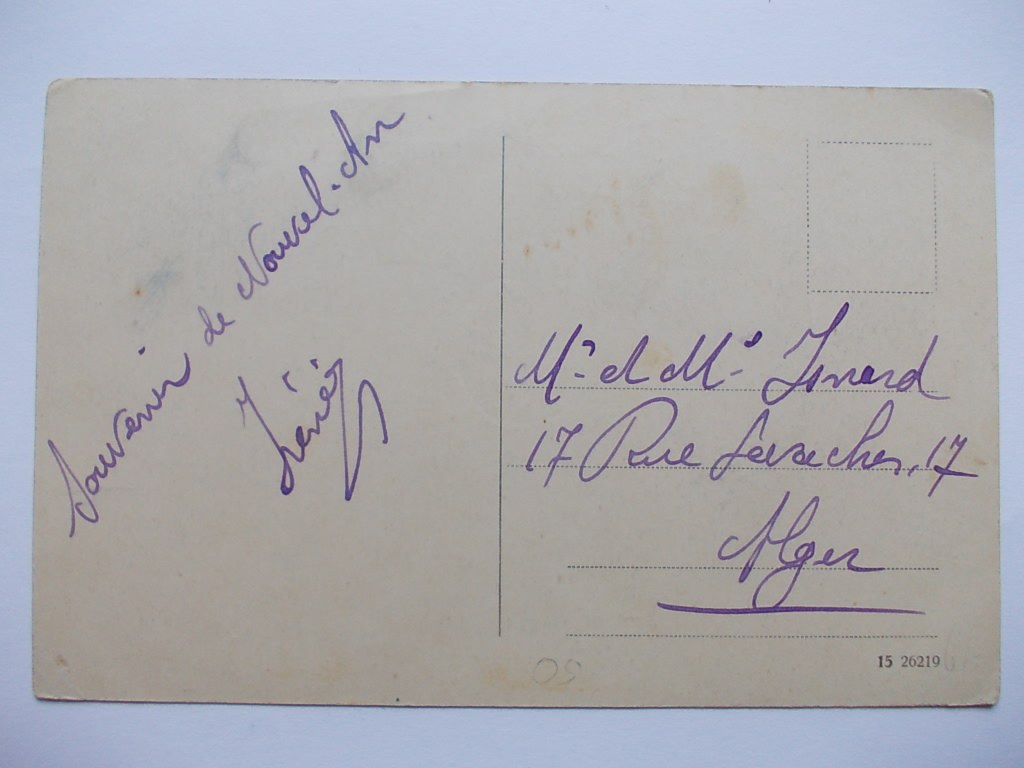 Souvenir de Nouvel-An
Mr et Me Isnard
17 Rue
, 17
Alger
15 26219
05